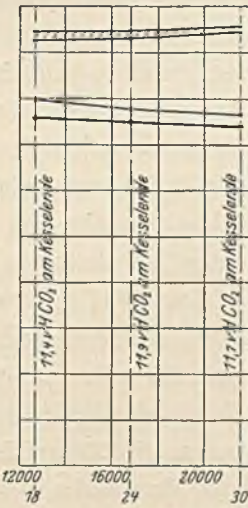 11,4 vH CO₂ am Kesselende
11,9 vH CO₂ am Kesselende
11,7 vH CO₂ am Kesselende
12000 16000 20000
18 24 30